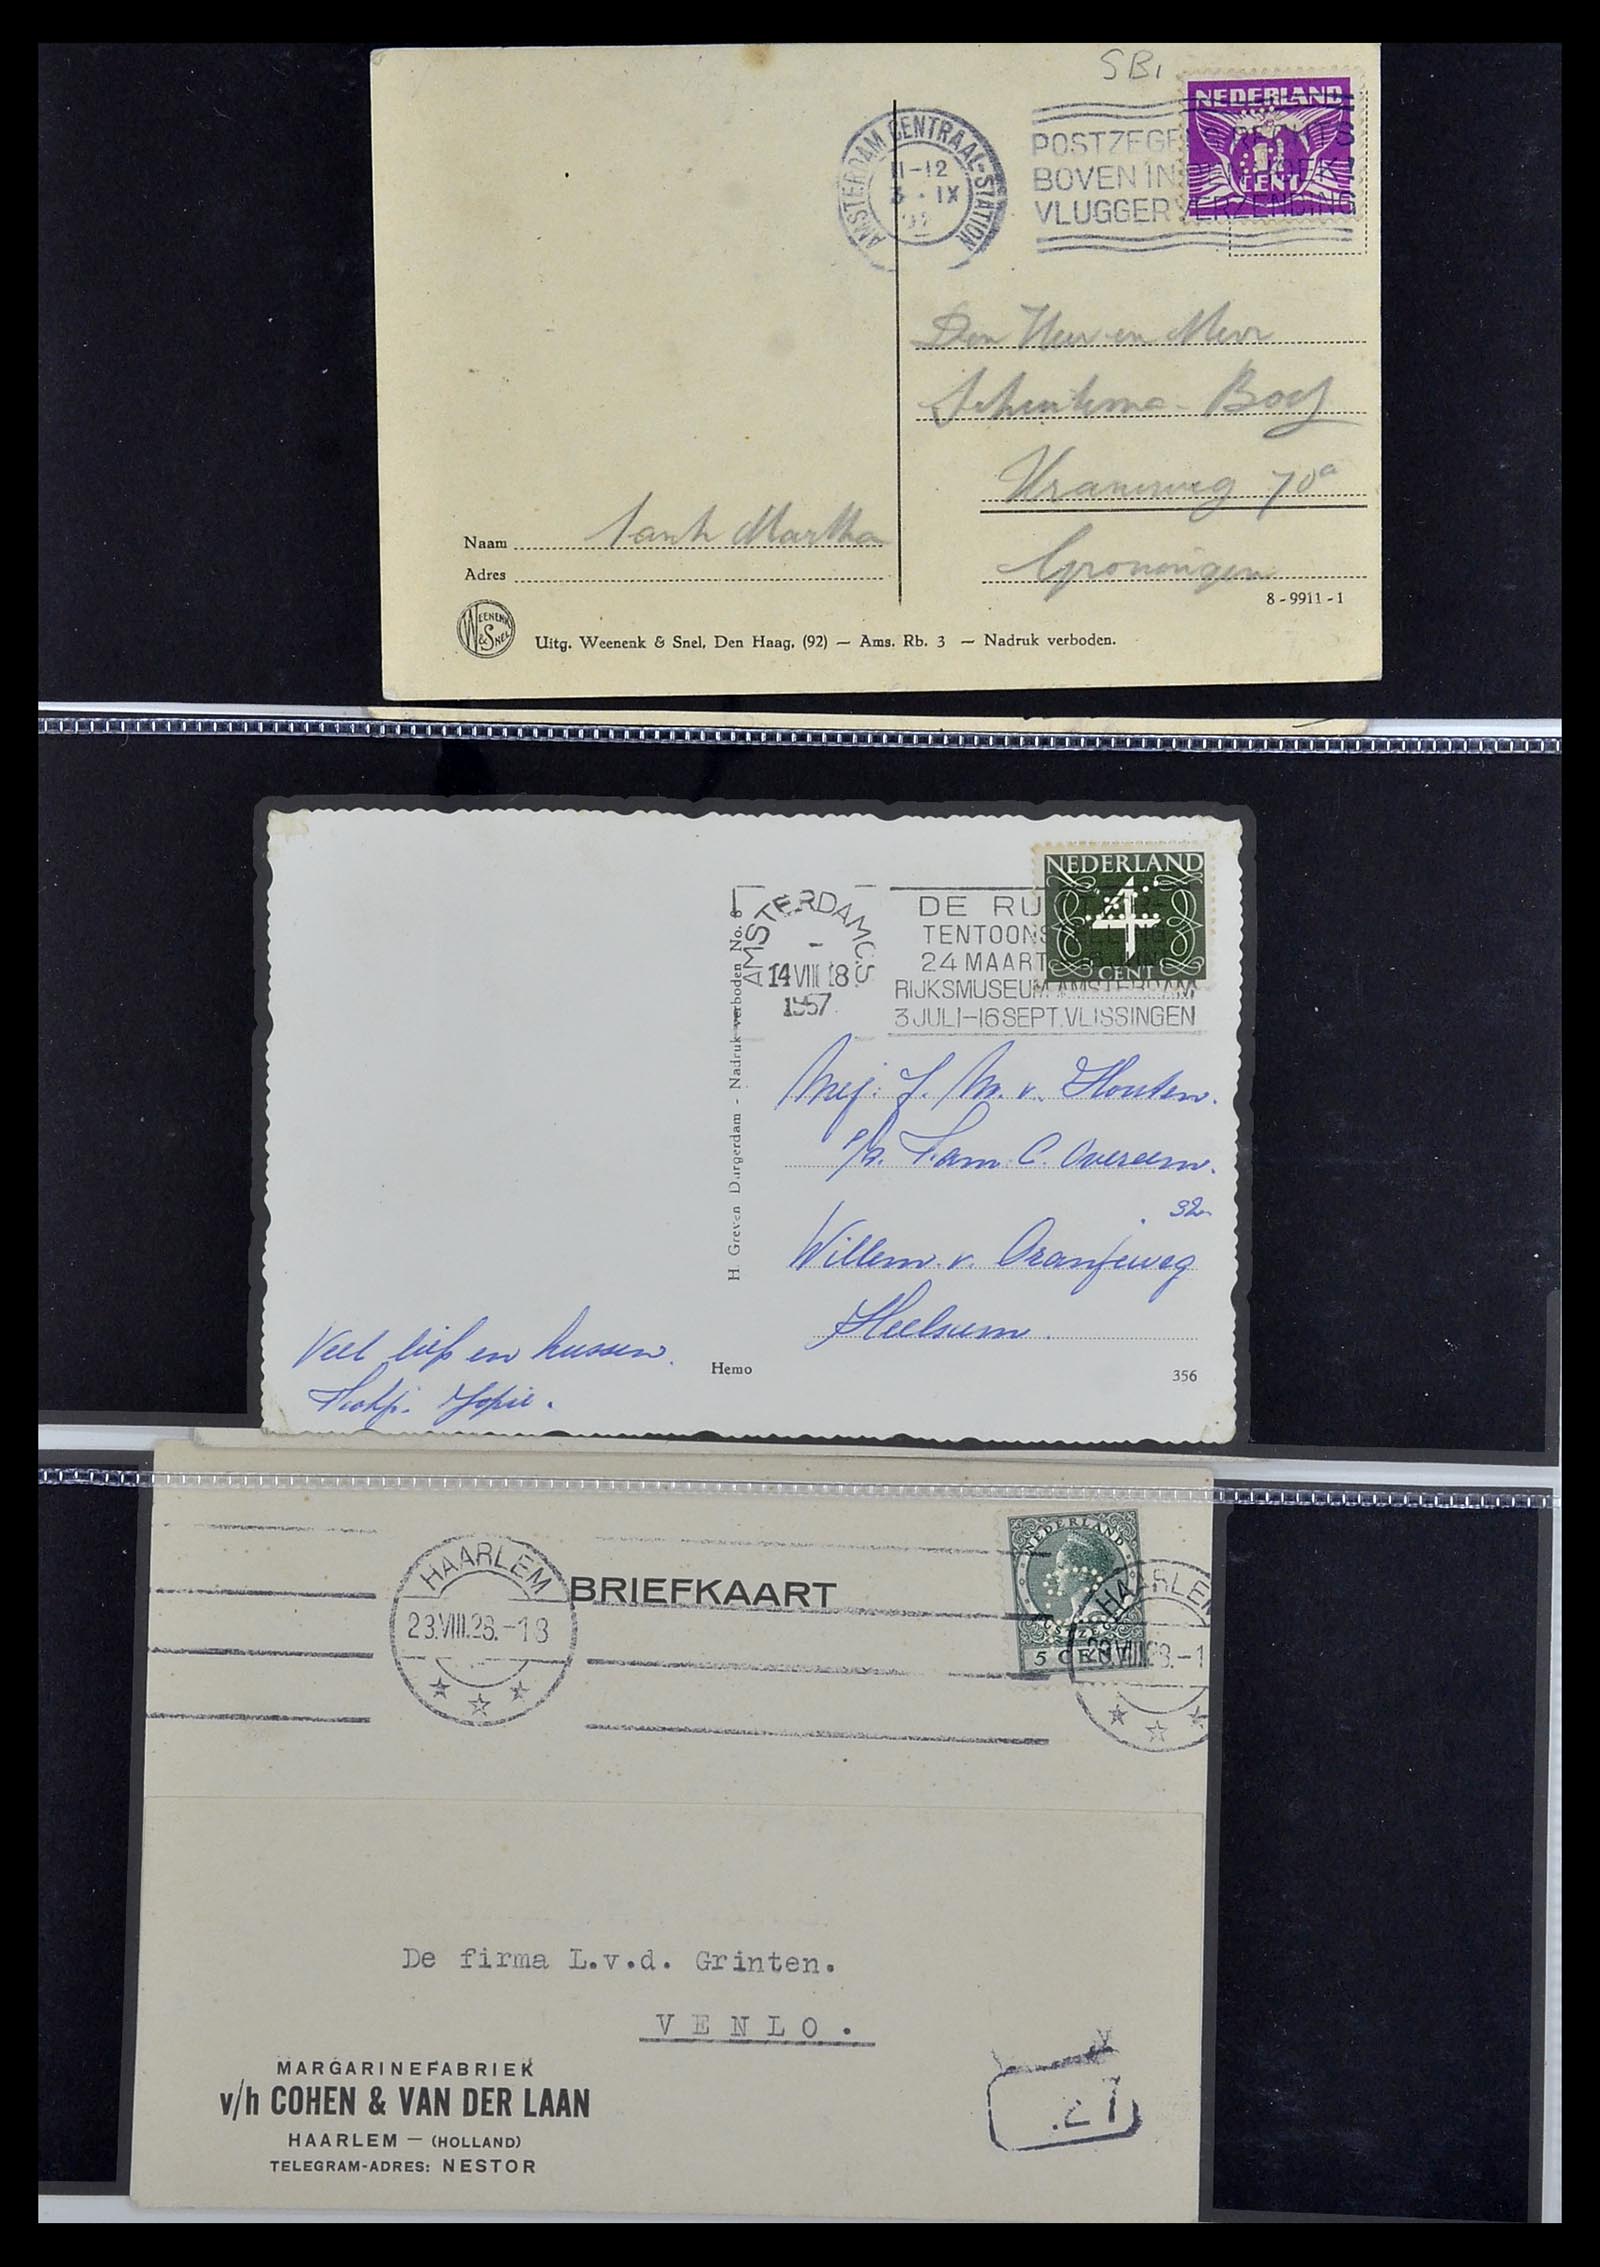 SB1
NEDERLAND
CENT
AMSTERDAM CENTRAAL-STATION
11-12
3 · IX
POSTZEGELS RECHTS
BOVEN IN DEN HOEK!
VLUGGER VERZENDING
Den Heer en Mevr
Bos
70a
Groningen
8-9911-1
Naam Martha
Adres
WEENENK & SNEL
Uitg. Weenenk & Snel, Den Haag. (92) — Ams. Rb. 3 — Nadruk verboden.
NEDERLAND
4
CENT
AMSTERDAM C.S
14 VIII 18
1957
DE RUYTER-
TENTOONSTELLING
24 MAART
RIJKSMUSEUM AMSTERDAM
3 JULI-16 SEPT. VLISSINGEN
H. Greven Durgerdam - Nadruk verboden No. 8
Mej. J. M. v. Houten.
p/a. Fam. C. Overeem.
32
Willem. v. Oranjeweg
Heelsum.
Veel liefs en kussen.
Jopie.
Hemo
356
NEDERLAND
POSTZEGEL
5 CENT
HAARLEM
23.VIII.28.-18
BRIEFKAART
HAARLEM
23.VIII.28.-1
De firma L.v.d. Grinten.
VENLO.
MARGARINEFABRIEK
v/h COHEN & VAN DER LAAN
HAARLEM — (HOLLAND)
TELEGRAM-ADRES: NESTOR